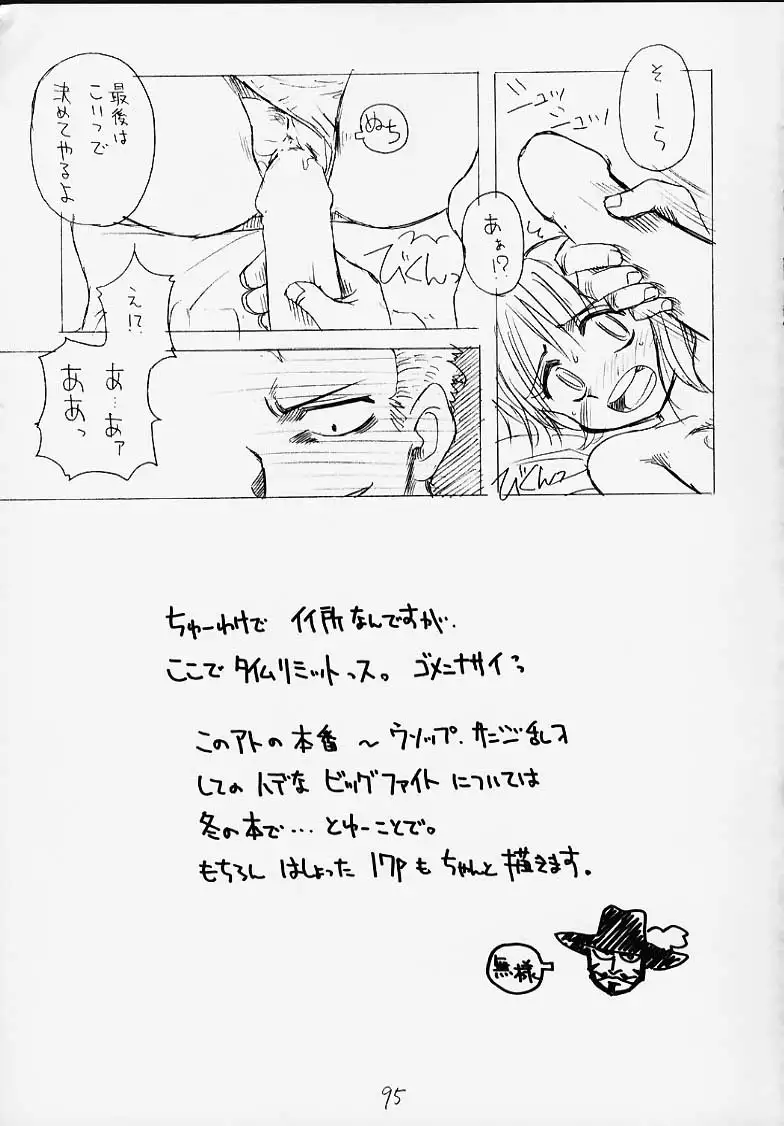 そーら
ニュッ
ニュッ
あぁ!?
びくんっ
最後は
こいつで
決めてやるよ
ぬち
びくんっ
え!?
あ…あァ
ああっ
ちゅーわけで イイ所なんですが、
ここでタイムリミットっス。ゴメンナサイっ
このアトの本番 〜 ウソップ、サンジ乱入
しての ハデな ビッグファイトについては
冬の本で… とゆーことで。
もちろん はしょった 17Pも ちゃんと描きます。
無様
95